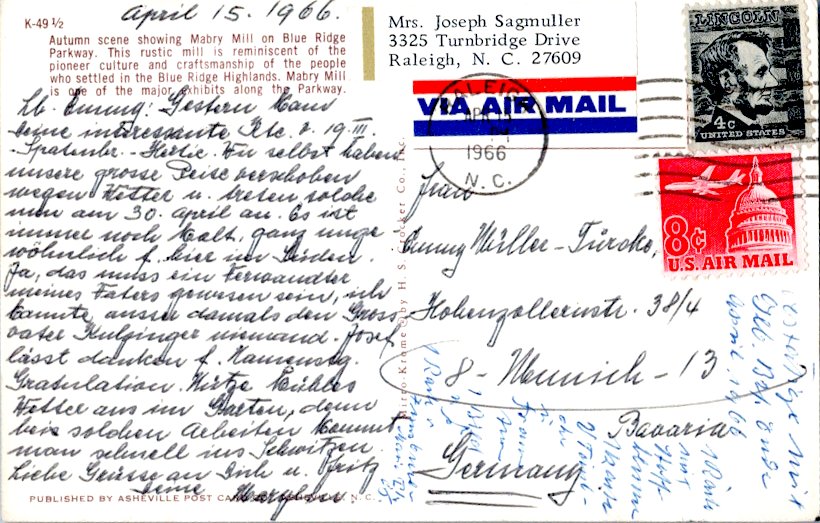 April 15. 1966.
K-49 ½
Autumn scene showing Mabry Mill on Blue Ridge
Parkway. This rustic mill is reminiscent of the
pioneer culture and craftsmanship of the people
who settled in the Blue Ridge Highlands. Mabry Mill
is one of the major exhibits along the Parkway.
Lb. Emmy: Gestern kam
Deine interessante Kte. v. 19. III.
Wir selbst haben
unsere grosse Reise verschoben
wegen Wetter u. treten solche
nun am 30. April an. Es ist
immer noch kalt, ganz unge-
wöhnlich f. hier im Süden.
Ja, das muss ein Verwandter
meines Vaters gewesen sein, ich
kannte ausser damals den Gross-
vater Kulzinger niemand. Josef
lässt danken f. Namenstg.
Gratulation. Nütze kühles
Wetter aus im Garten, denn
bei solchen Arbeiten kommt
man schnell ins Schwitzen.
Liebe Grüsse an Dich u. Fritz
Deine
PUBLISHED BY ASHEVILLE POST CARD CO., ASHEVILLE, N. C.
Mirro-Krome by H. S. Crocker Co., Inc.
Mrs. Joseph Sagmuller
3325 Turnbridge Drive
Raleigh, N. C. 27609
VIA AIR MAIL
RALEIGH
APR 15
1966
N. C.
LINCOLN
4c
UNITED STATES
8c
U.S. AIR MAIL
Frau
Emmy Müller-Türcke,
Hohenzollernstr. 38/4
8 - Munich - 13
Bavaria
Germany